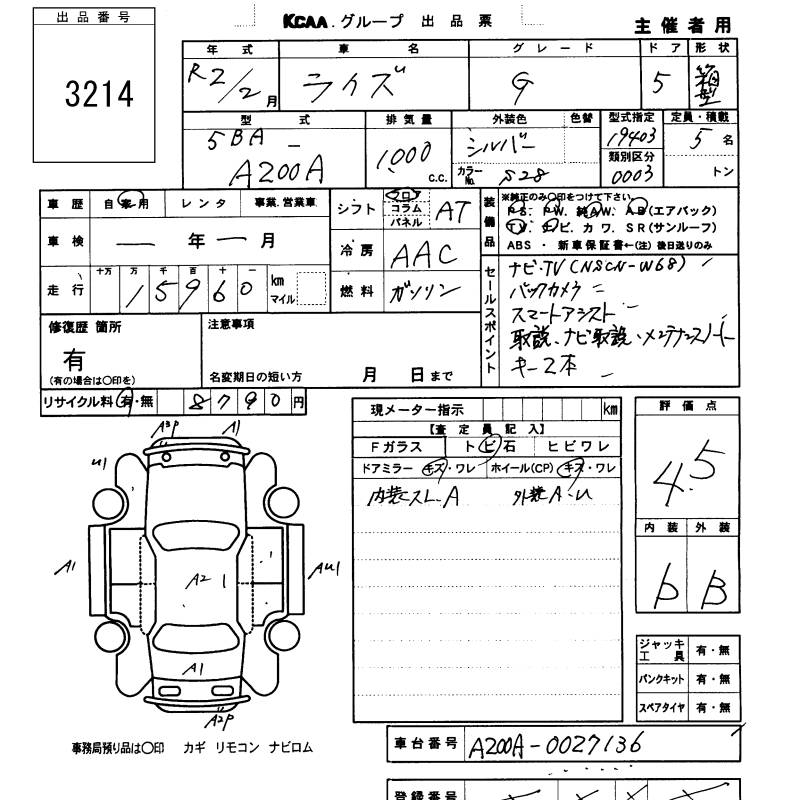 出品番号
3214
KCAA グループ 出品票
主催者用
年式 車名 グレード ドア 形状
R2/2月 ライズ G 5 箱型
型式 排気量 外装色 色替 型式指定 定員・積載
5BA- 1000 c.c. シルバー 19403 5名
A200A カラーNo. S28 類別区分 0003 トン
車歴 自家用 レンタ 事業.営業車
シフト フロ コラム パネル AT
車検 ― 年 ― 月
冷房 AAC
走行 十万 万 千 百 十 一 km マイル
15960
燃料 ガソリン
装備品
※純正のみ〇印をつけて下さい。
P S. P W. 純A W. A B(エアバッグ)
T V. ナビ. カ ワ. S R(サンルーフ)
ABS ・ 新車保証書←(注) 後日送りのみ
セールスポイント
ナビ・TV(NSCN-W68)
バックカメラ
スマートアシスト
取説、ナビ取説・メンテナンスノート
キー2本
修復歴 箇所
有
(有の場合は〇印を)
注意事項
名変期日の短い方 月 日まで
リサイクル料 有・無 8790円
現メーター指示 km
【査定員記入】
Fガラス トビ石 ヒビワレ
ドアミラー キズ・ワレ ホイール(CP) キズ・ワレ
内装スレ.A 外装A.U
評価点
4.5
内装 外装
b B
ジャッキ工具 有・無
パンクキット 有・無
スペアタイヤ 有・無
A3P A1
U1
A1 A2 1 AU1
A1
A2P
事務局預り品は〇印 カギ リモコン ナビロム
車台番号 A200A-0027136
登録番号